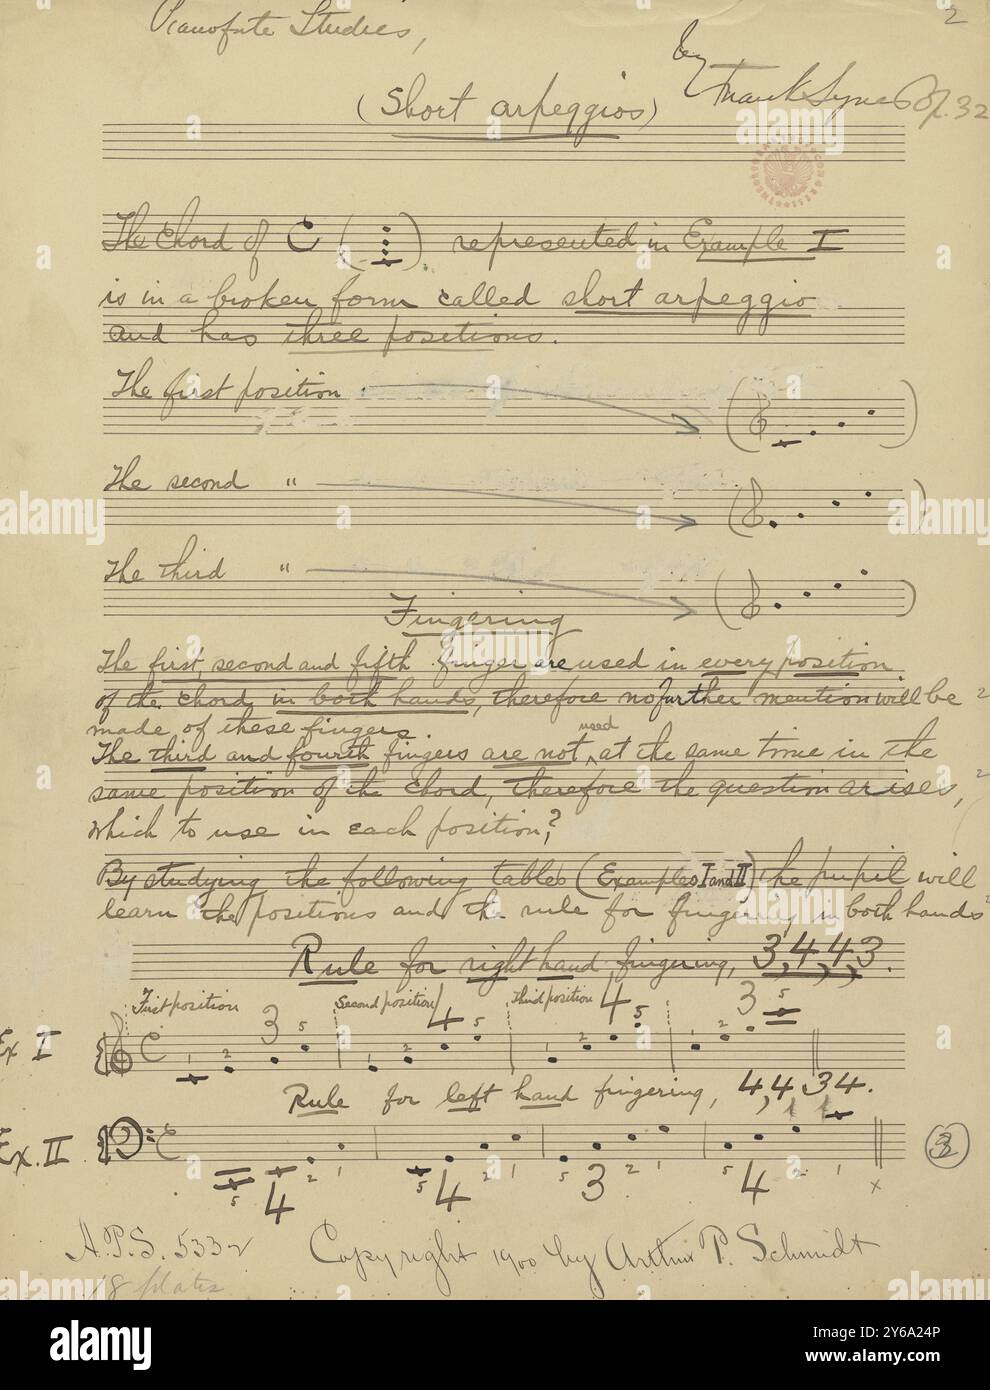 2
Pianoforte Studies,
by Frank Lynes Op. 32
(Short arpeggios)
The Chord of C ( ) represented in Example I
is in a broken form called short arpeggio
and has three positions.
The first position
The second "
The third "
Fingering
The first, second and fifth finger are used in every position
of the chord, in both hands, therefore no further mention will be
made of these fingers.
The third and fourth fingers are not used at the same time in the
same position of the chord, therefore the question arises,
which to use in each position?
By studying the following tables (Examples I and II) the pupil will
learn the positions and the rule for fingering in both hands
Rule for right hand fingering, 3,4,4,3.
First position Second position Third position
3 4 4 3
Ex I
1 2 5 1 2 5 1 2 5 1 2 5
Rule for left hand fingering, 4,4,3 4.
Ex. II
5 4 2 1 5 4 2 1 5 3 2 1 5 4 2 1
x
A.P.S. 5332
Copyright 1900 by Arthur P. Schmidt
18 plates
alamy
Image ID: 2Y6A24P
www.alamy.com